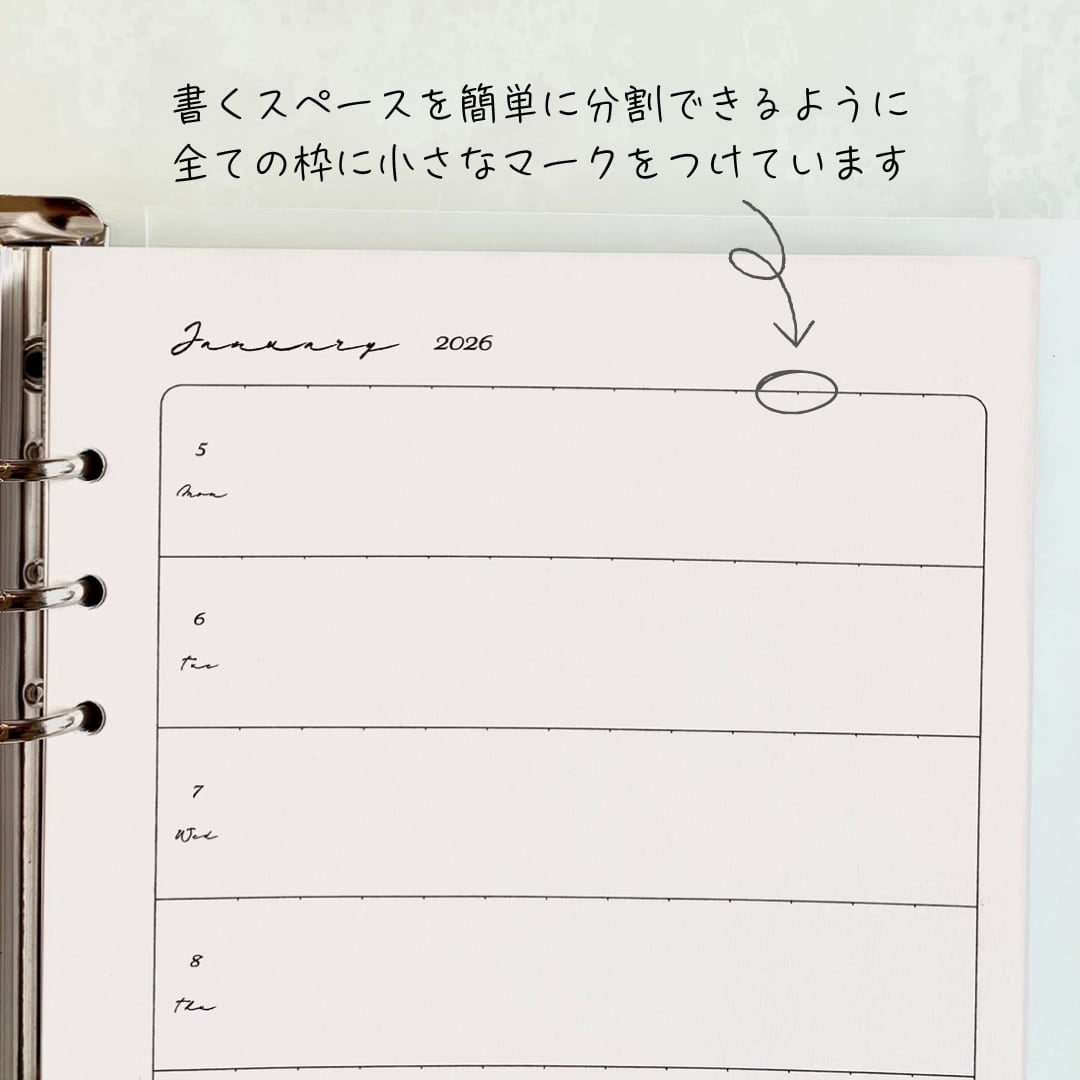 書くスペースを簡単に分割できるように
全ての枠に小さなマークをつけています
January 2026
5
Mon
6
Tue
7
Wed
8
Thu